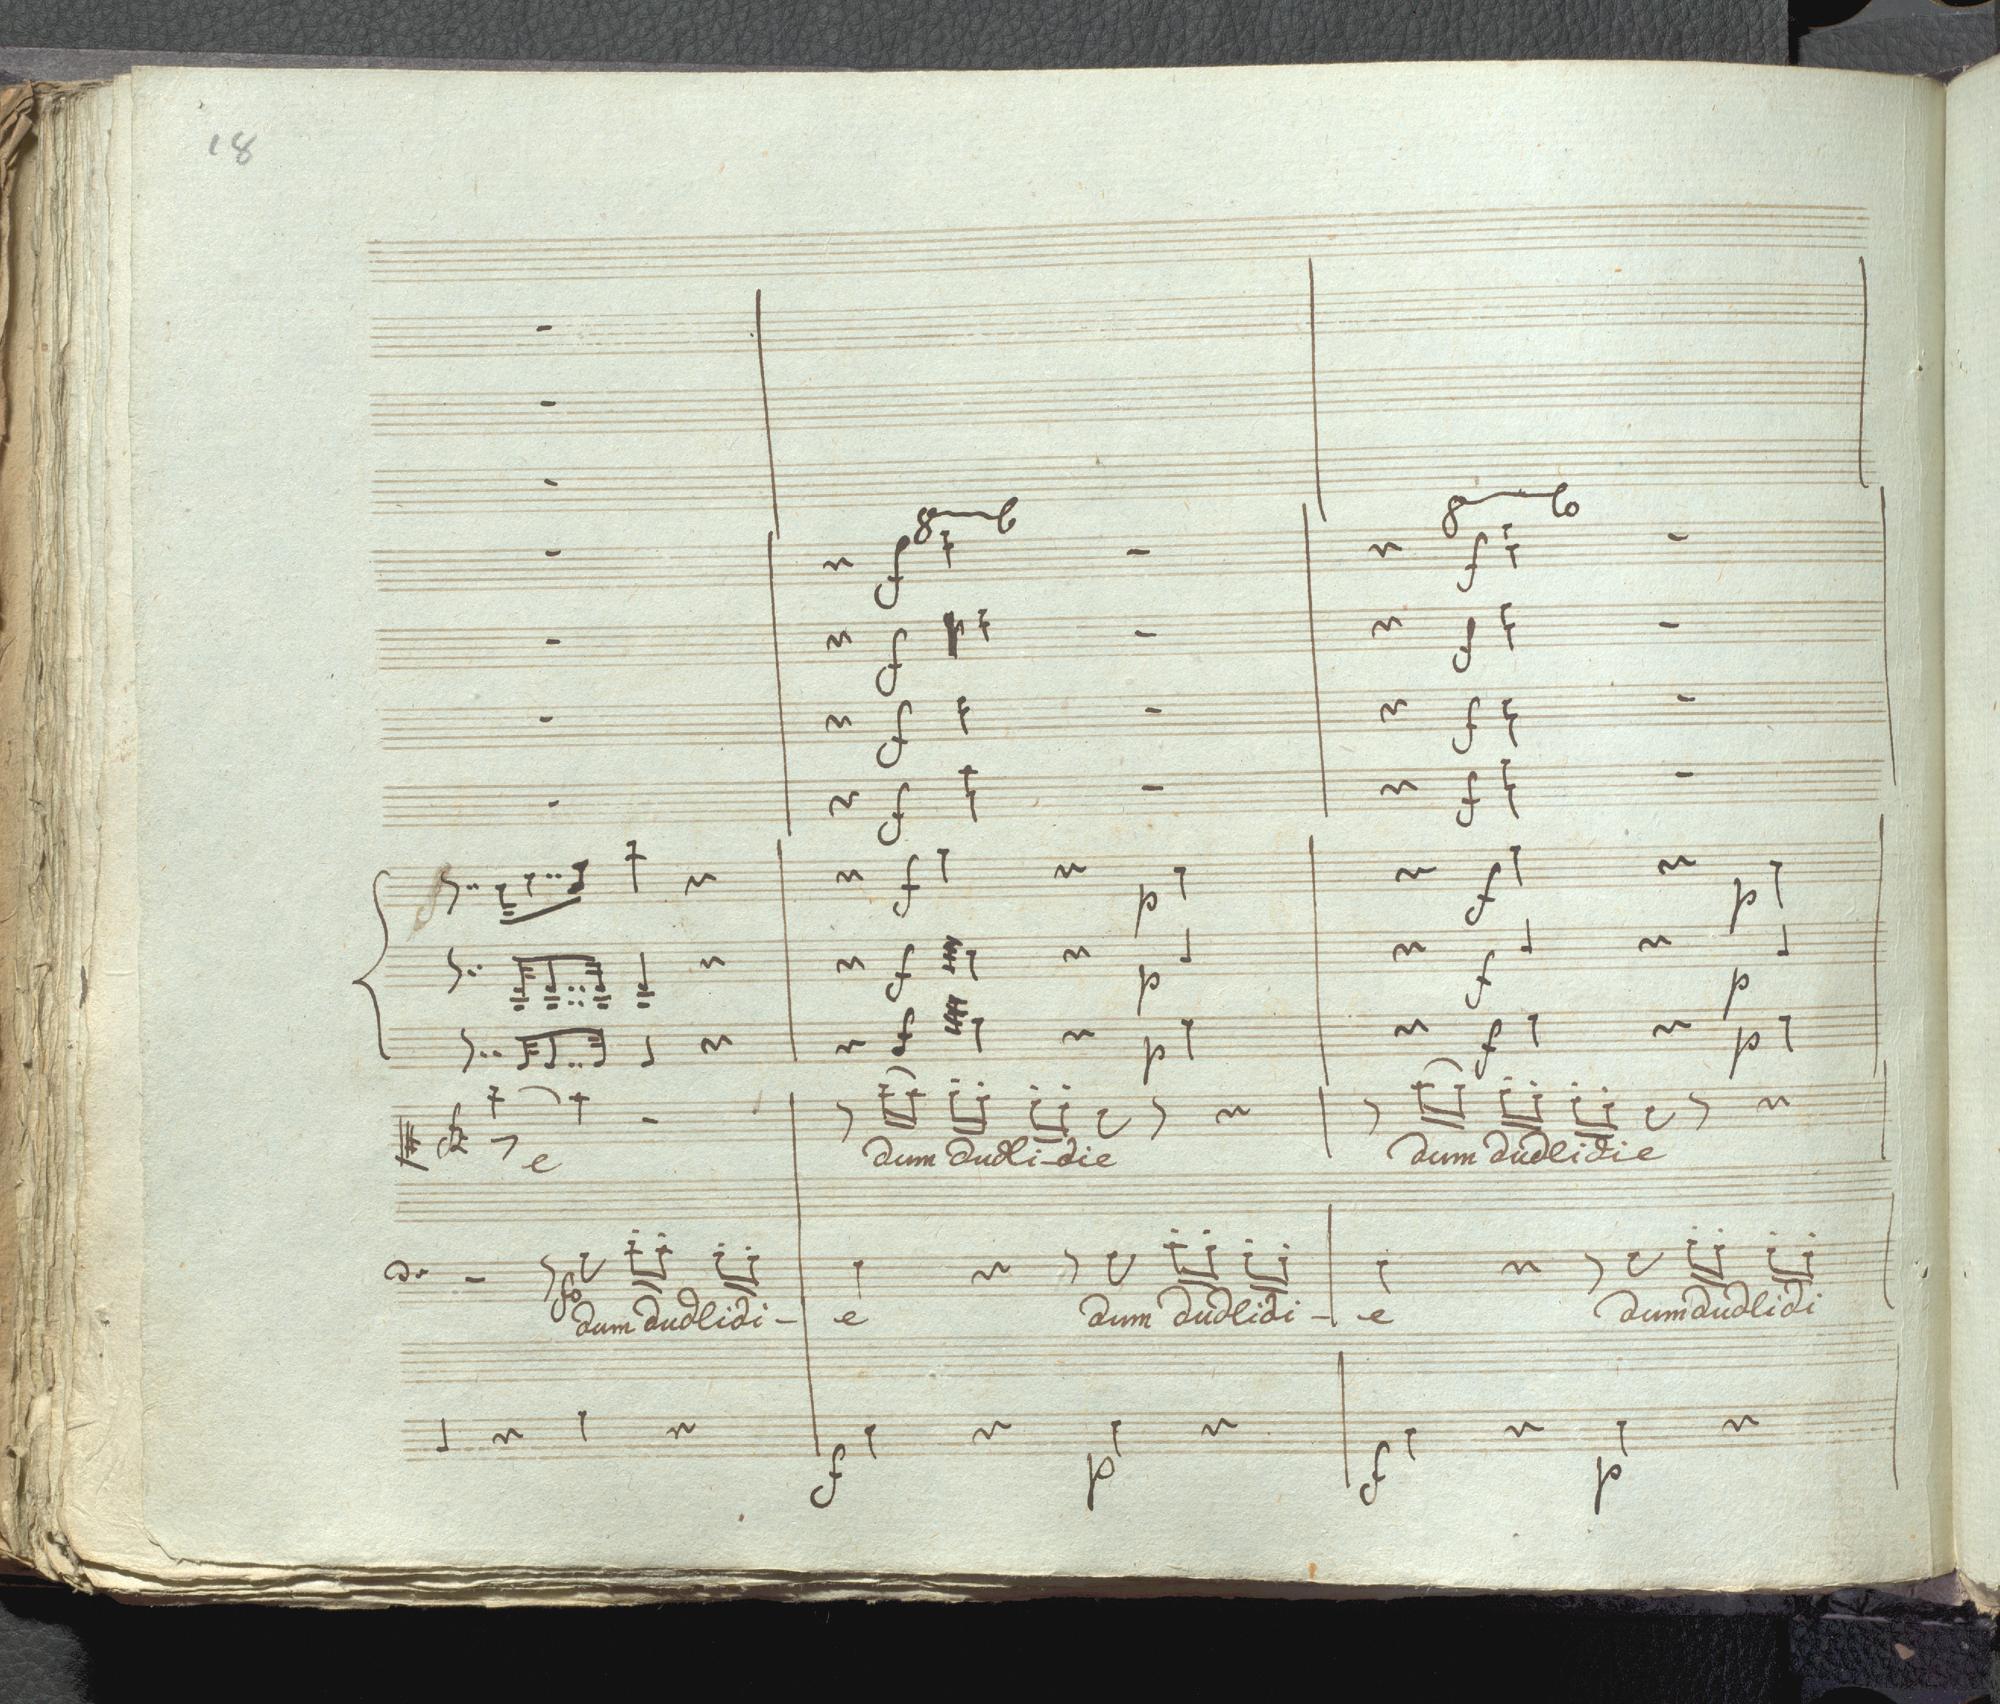 18
8 6 8 6
f f
f p f
f f
f f
f p f p
f p f p
f p f p
e dum dudli-die dum dudlidie
fo
dum dudlidi - e dum dudlidi - e dum dudlidi
f p f p